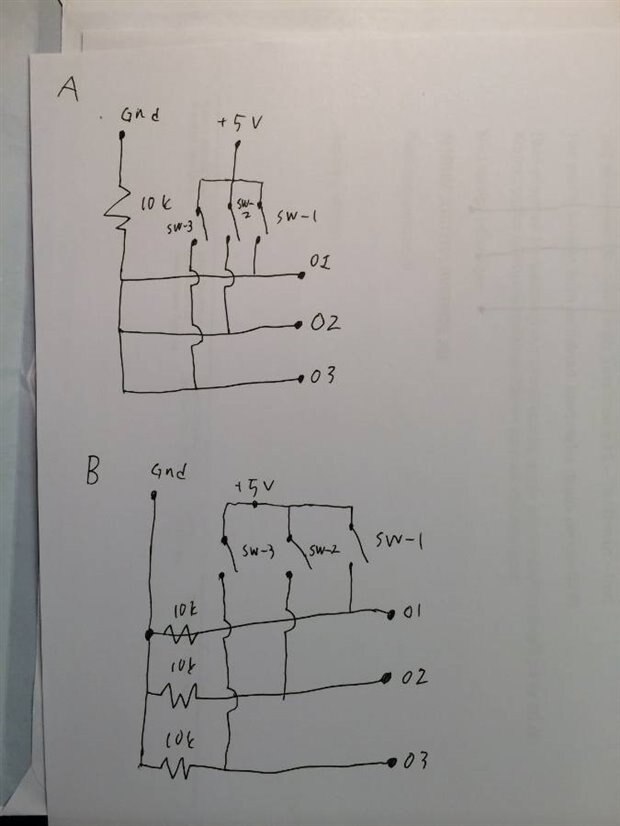 A
Gnd
+5V
10k
SW-3
SW-2
SW-1
O1
O2
O3
B
Gnd
+5V
SW-3
SW-2
SW-1
10k
O1
10k
O2
10k
O3